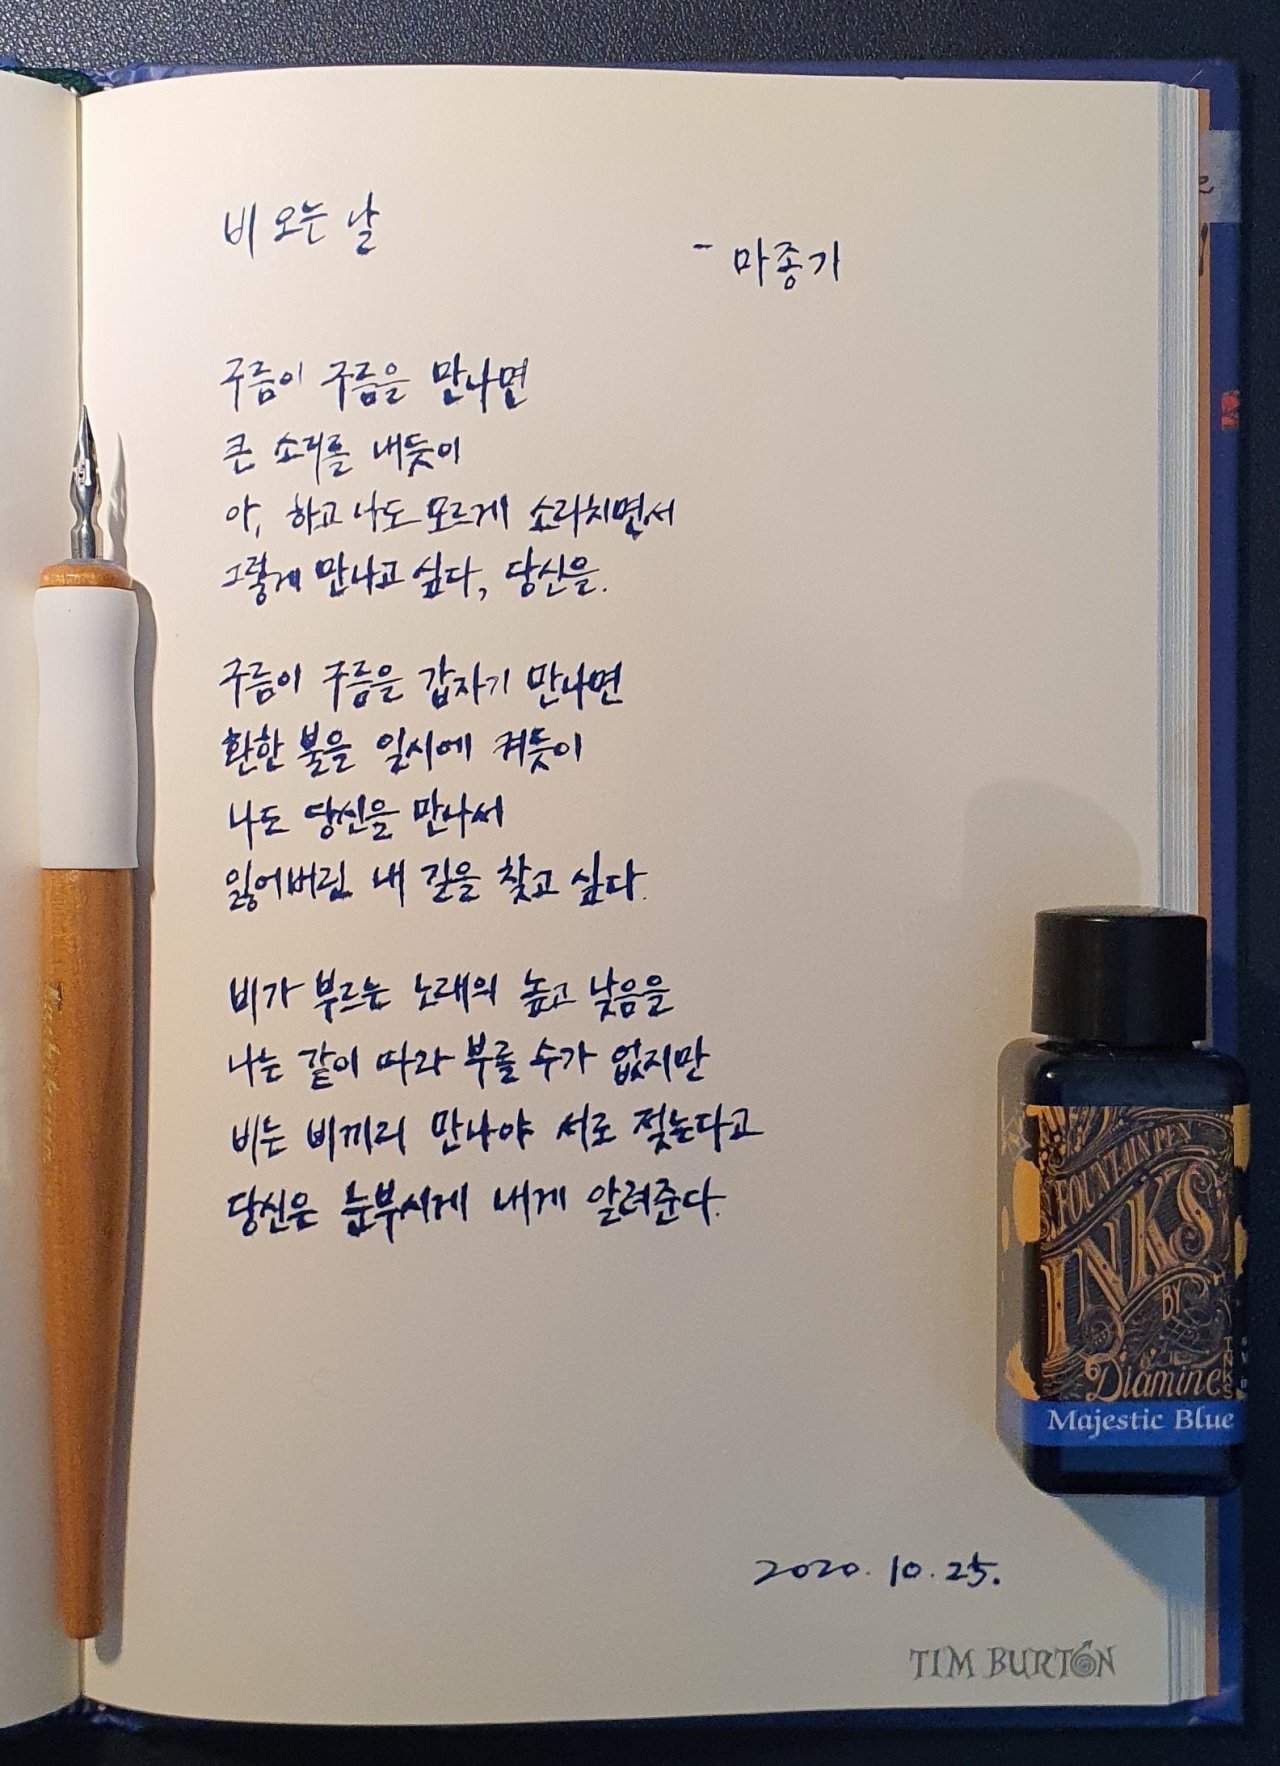 비 오는 날
- 마종기
구름이 구름을 만나면
큰 소리를 내듯이
아, 하고 나도 모르게 소리치면서
그렇게 만나고 싶다, 당신을.
구름이 구름을 갑자기 만나면
환한 불을 일시에 켜듯이
나도 당신을 만나서
잃어버린 내 길을 찾고 싶다.
비가 부르는 노래의 높고 낮음을
나는 같이 따라 부를 수가 없지만
비는 비끼리 만나야 서로 젖는다고
당신은 눈부시게 내게 알려준다.
2020. 10. 25.
TIM BURTON
FOUNTAIN PEN
INKS
BY
Diamine
Majestic Blue